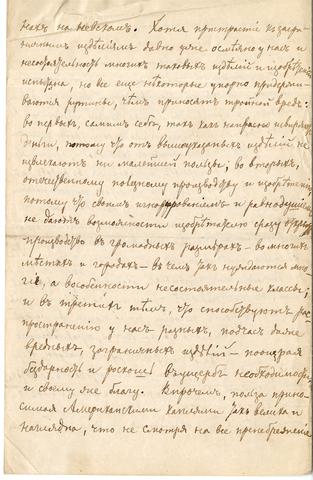 Хотя пристрастіе къ загра-
ничнымъ издѣліямъ давно уже осмѣяно у насъ и
несостоятельность многихъ таковыхъ издѣлій и изобрѣтеній
испытана, но все еще нѣкоторые упорно придержи-
ваются рутины, чѣмъ приносятъ тройной вредъ:
во первыхъ, самимъ себѣ, такъ какъ напрасно
деньги, потому что отъ вышеуказанныхъ издѣлій не
извлекаютъ ни малейшей пользы; во вторыхъ,
отечественному производству и изобрѣтенію
потому что своимъ игнорированіемъ и равнодушіемъ
не даютъ возможности изобрѣтателю сразу
производство въ громадныхъ размѣрахъ - во многихъ
мѣстахъ и городахъ - въ чемъ такъ нуждаются мно-
гіе, а въ особенности несостоятельные классы;
и въ третьихъ тѣмъ, что способствуютъ рас-
пространенію у насъ разныхъ, подчасъ даже
вредныхъ, заграничныхъ издѣлій - поощряя
и роскошь въ ущербъ необходимости
и своему же благу. Впрочемъ, польза прино-
симая Американскими каплями такъ велика и
наглядна, что не смотря на все пренебреженіе